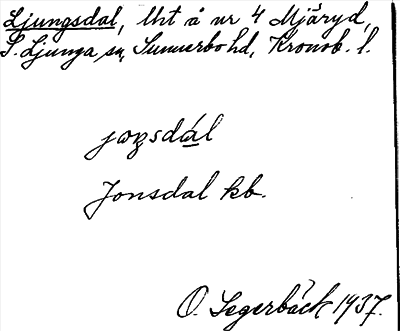 Ljungsdal, lht å nr 4 Mjäryd,
S. Ljunga sn, Sunnerbo hd, Kronob. l.
joŋsdál
Jonsdal kb.
O. Segerbäck 1937.